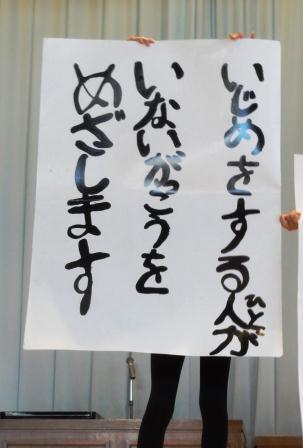 いじめをする人が
いないがっこうを
めざします